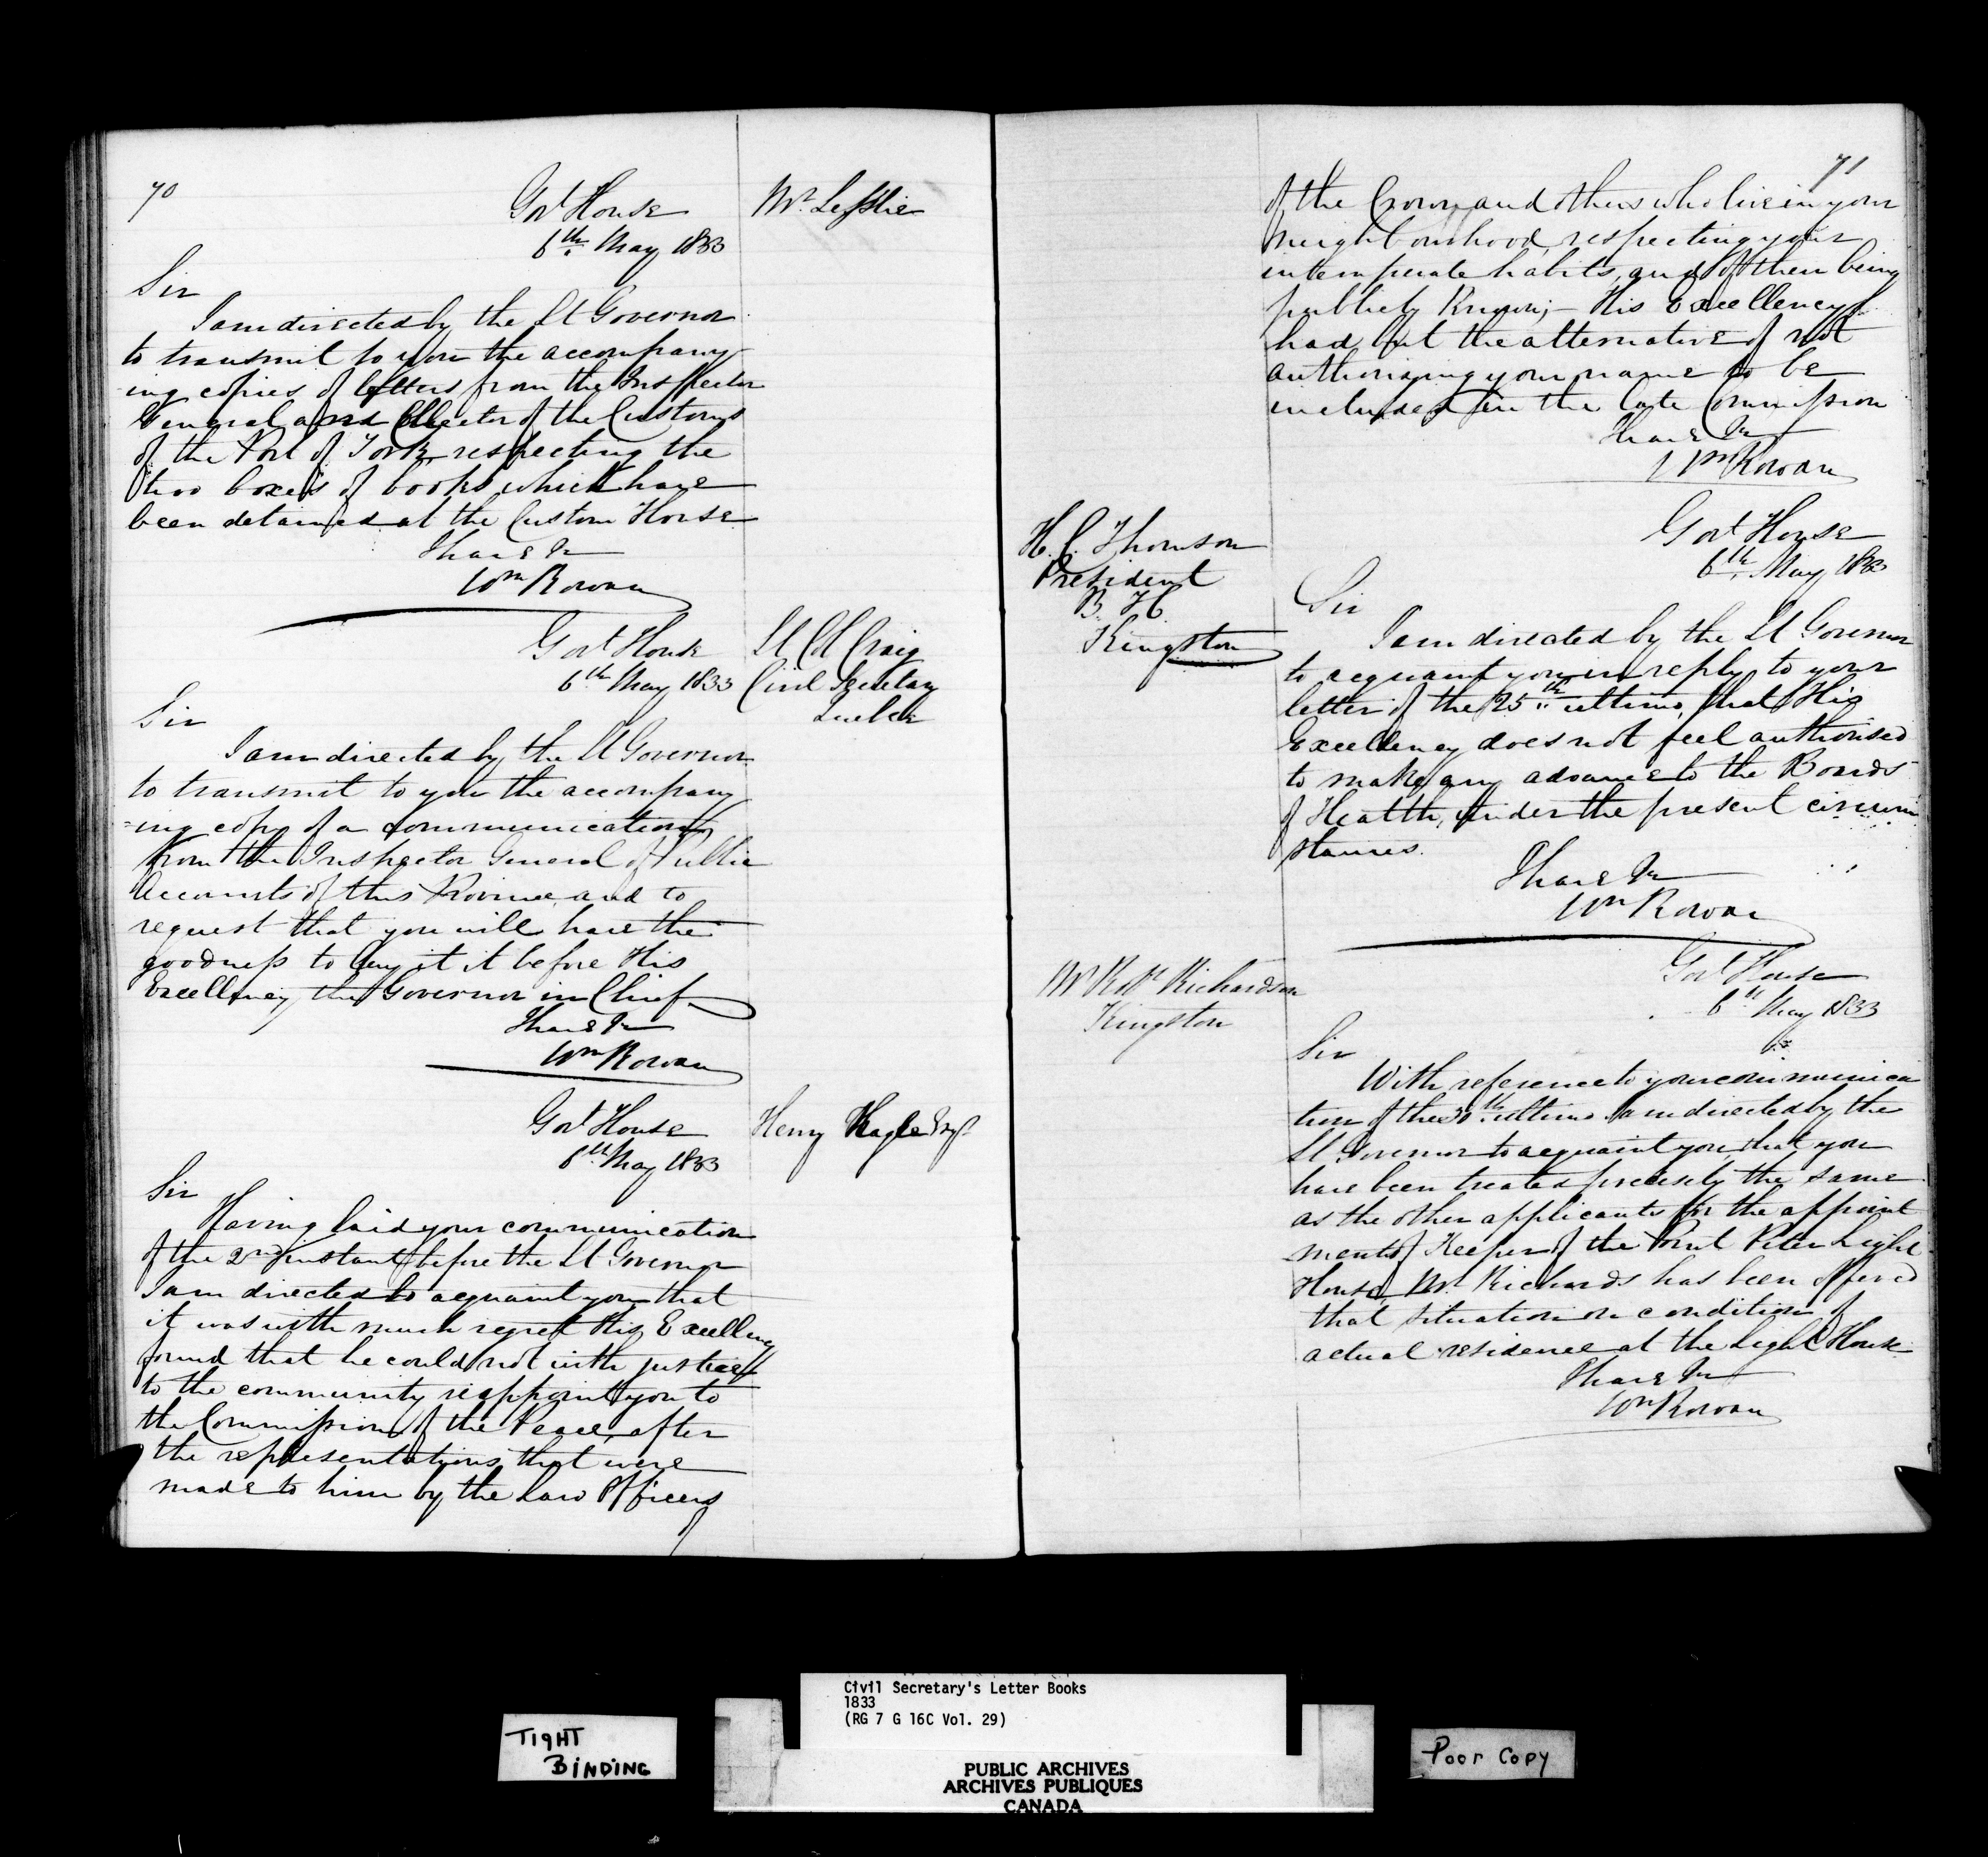 70
Govt House
6th May 1833
Mr. Lesslie
Sir
I am directed by the Lt Governor
to transmit to you the accompany
-ing copies of letters from the Inspector
General and Collector of the Customs
of the Port of York, respecting the
two boxes of books which have
been detained at the Custom House
I have &c
Wm Rowan
Govt House
6th May 1833
Lt Col Craig
Civil Secretary
Quebec
Sir
I am directed by the Lt Governor
to transmit to you the accompany
-ing copy of a communication
from the Inspector General of Public
Accounts of this Province, and to
request that you will have the
goodness to lay it it before His
Excellency the Governor in Chief
I have &c
Wm Rowan
Govt House
6th May 1833
Henry Esqr
Sir
Having laid your communication
of the 2nd instant before the Lt Governor
I am directed to acquaint you that
it was with much regret His Excellency
found that he could not with justice
to the community reappoint you to
the Commission of the Peace, after
the representations that were
made to him by the Law Officers
71
of the Crown and others who live in your
neighbourhood, respecting your
intemperate habits, and of them being
publicly known; – His Excellency
had but the alternative of not
authorizing your name to be
included in the late Commission
I have &c
Wm Rowan
H. C. Thomson
President
B. H.
Kingston
Govt House
6th May 1833
Sir
I am directed by the Lt Governor
to acquaint you in reply to your
letter of the 25th ultimo, that His
Excellency does not feel authorised
to make any advance to the Boards
of Health, under the present circum
stances.
I have &c
Wm Rowan
Mr Robt Richardson
Kingston
Govt House
6th May 1833
Sir
With reference to your communica
tion of the 30th ultimo I am directed by the
Lt Governor to acquaint you, that you
have been treated precisely the same
as the other applicants for the appoint
ment of Keeper of the Point Peter Light
House, Mr. Richards has been offered
that situation on condition of
actual residence at the Light House
I have &c
Wm Rowan
Civil Secretary's Letter Books
1833
(RG 7 G 16C Vol. 29)
TIGHT
BINDING
PUBLIC ARCHIVES
ARCHIVES PUBLIQUES
CANADA
Poor Copy